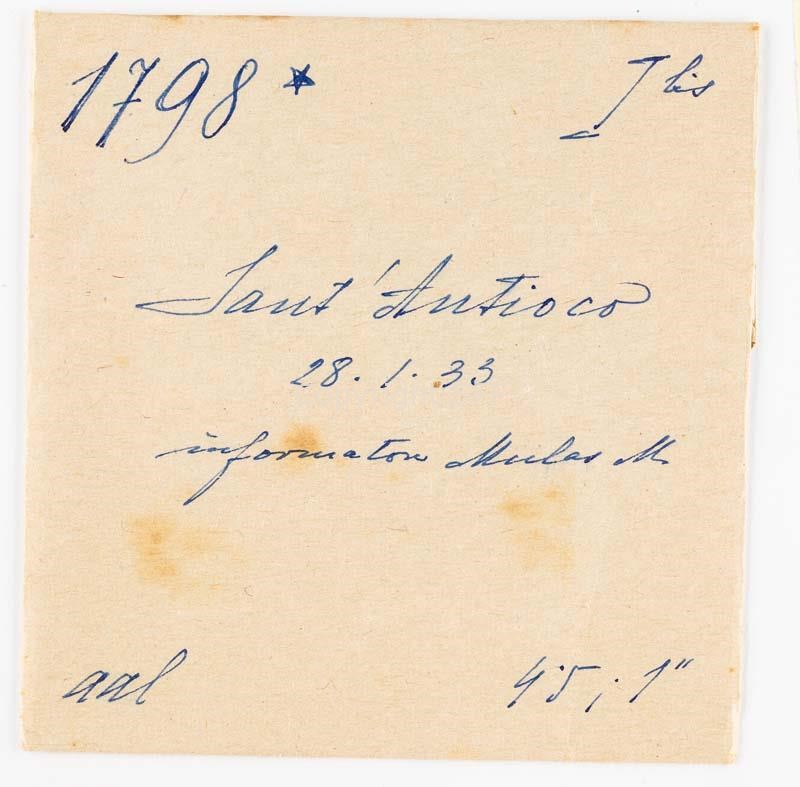 1798* I bis
Sant'Antioco
28.1.33
informatore Mulas M.
aal 45; 1"